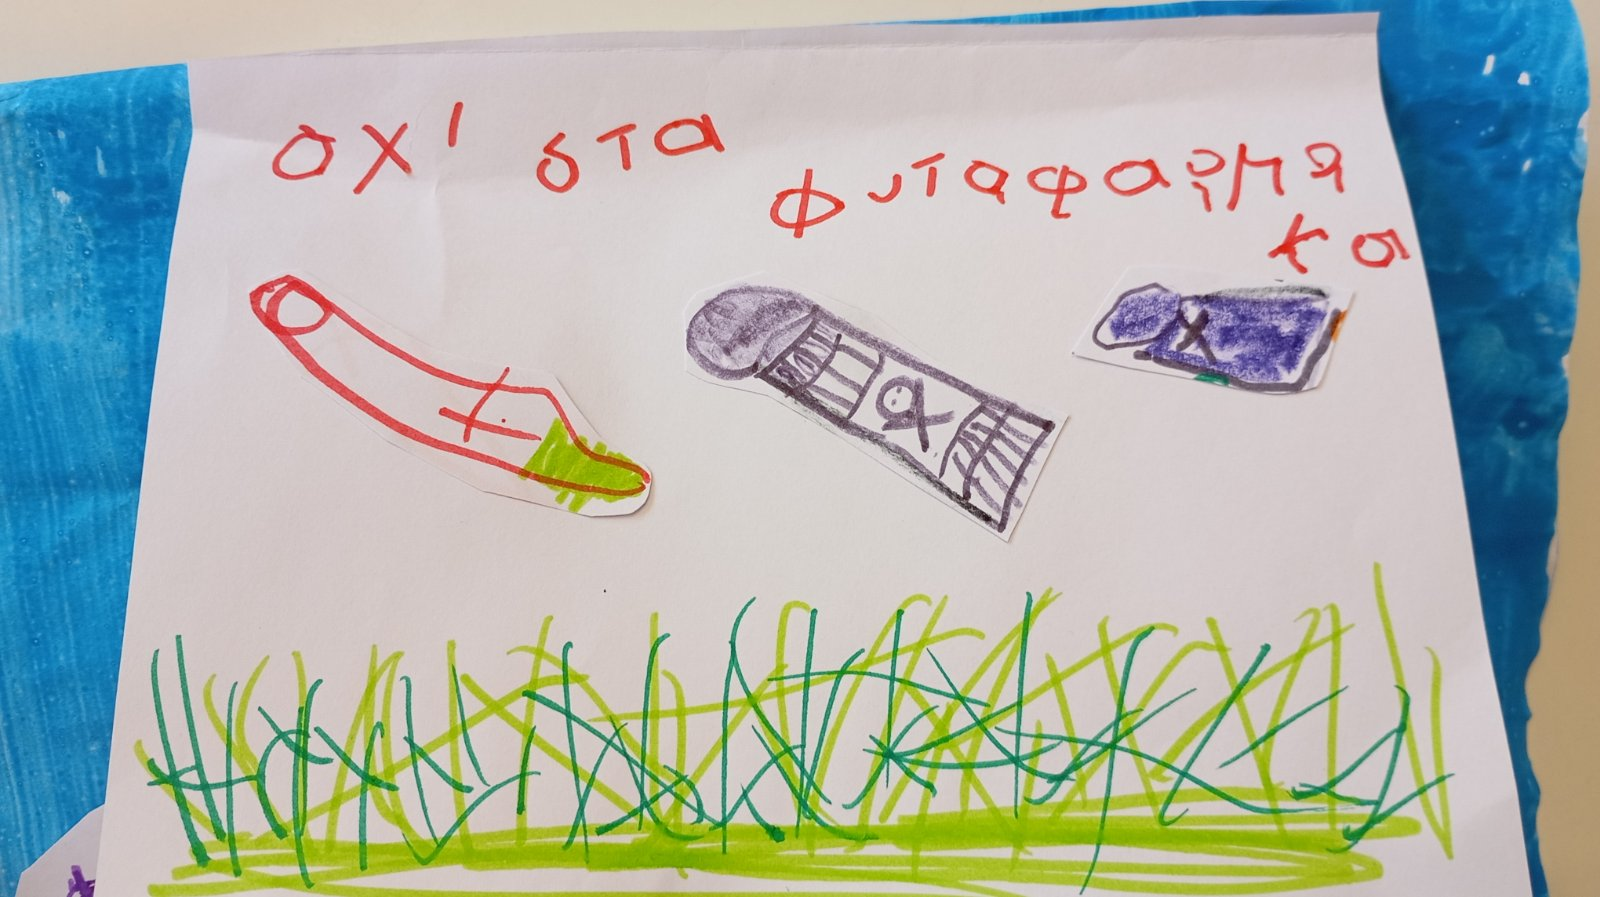 οχι στα
φυταφαρμα
κα
οχ
χ